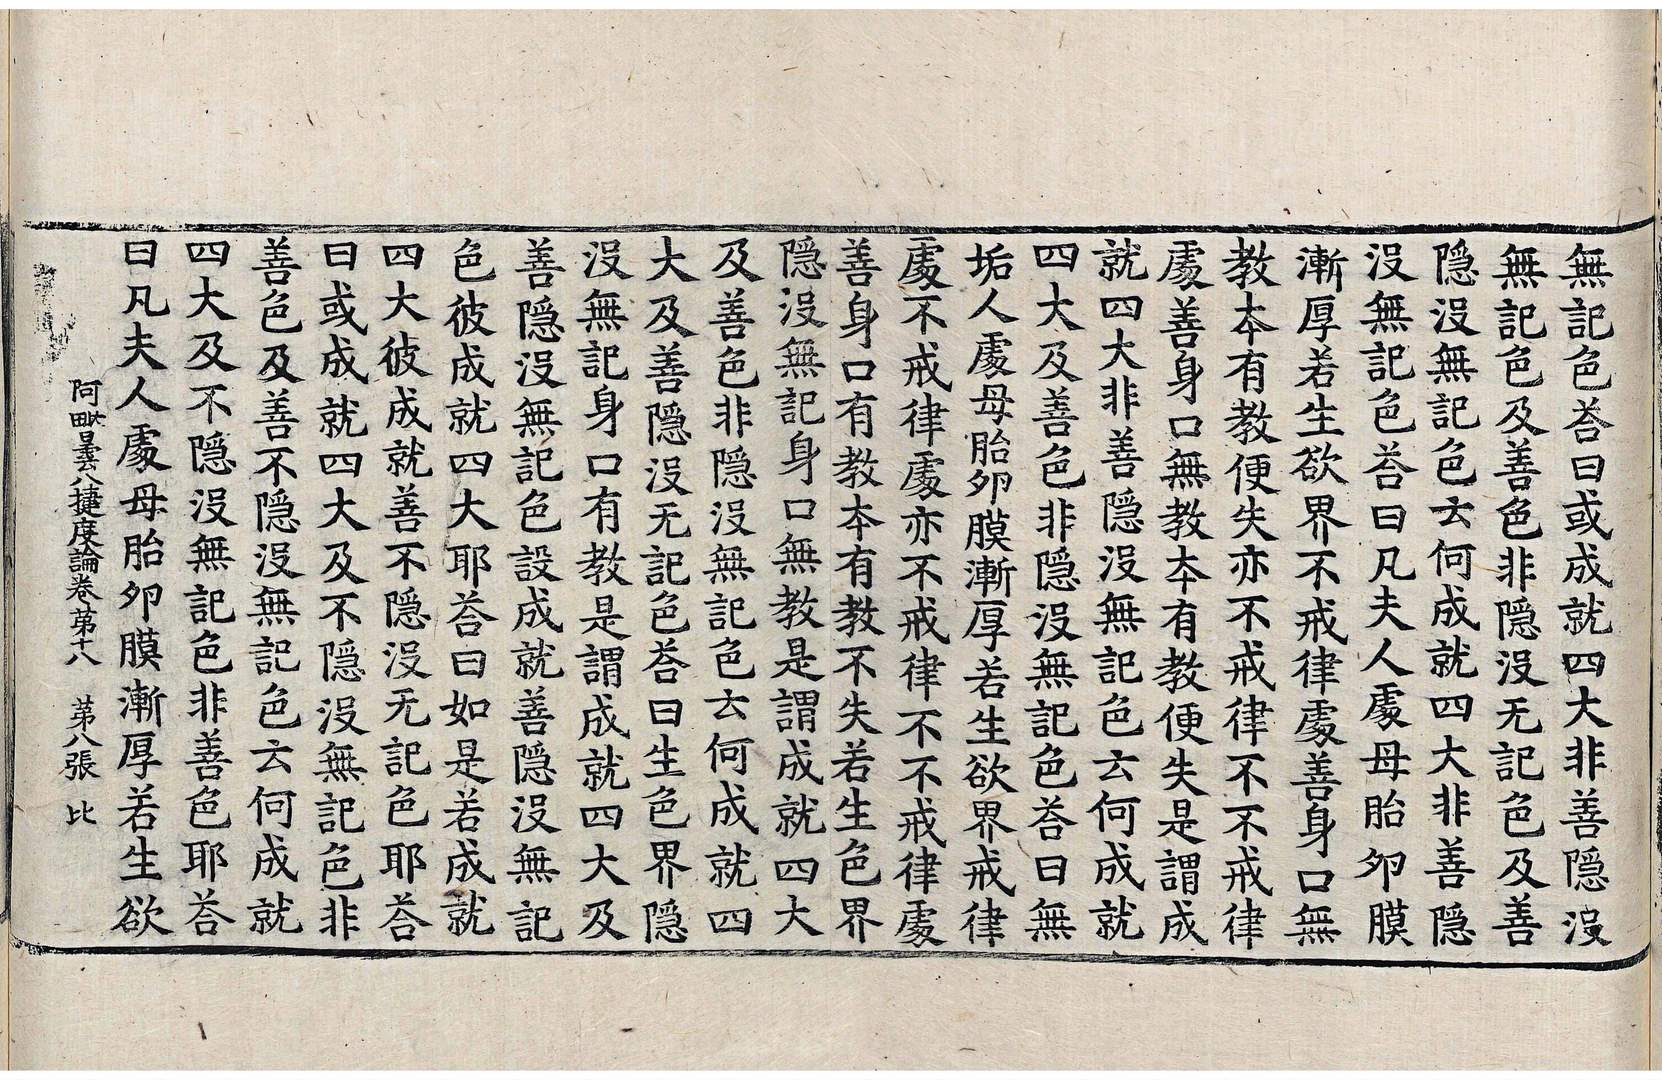 無記色荅曰或成就四大非善隱沒
無記色及善色非隱沒无記色及善
隱沒無記色云何成就四大非善隱
沒無記色荅曰凡夫人處母胎夘膜
漸厚若生欲界不戒律處善身口無
教夲有教便失亦不戒律不不戒律
處善身口無教夲有教便失是謂成
就四大非善隱沒無記色云何成就
四大及善色非隱沒無記色荅曰無
垢人處母胎夘膜漸厚若生欲界戒律
處不戒律處亦不戒律不不戒律處
善身口有教夲有教不失若生色界
隱沒無記身口無教是謂成就四大
及善色非隱沒無記色云何成就四
大及善隱沒无記色荅曰生色界隱
沒無記身口有教是謂成就四大及
善隱沒無記色設成就善隱沒無記
色彼成就四大耶荅曰如是若成就
四大彼成就善不隱沒无記色耶荅
曰或成就四大及不隱沒無記色非
善色及善不隱沒無記色云何成就
四大及不隱沒無記色非善色耶荅
曰凡夫人處母胎夘膜漸厚若生欲
阿毗曇八揵度論卷第十八　第八張　比